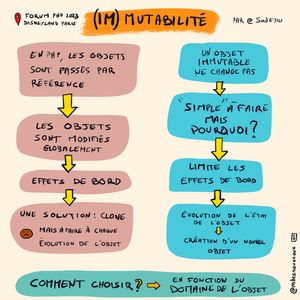 FORUM PHP 2023
DISNEYLAND PARIS
(IM) MUTABILITÉ
PAR @
EN PHP, LES OBJETS
SONT PASSÉS PAR
RÉFÉRENCE
LES OBJETS
SONT MODIFIÉS
GLOBALEMENT
EFFETS DE BORD
UNE SOLUTION : CLONE
MAIS À FAIRE À CHAQUE
ÉVOLUTION DE L'OBJET
UN OBJET
IMMUTABLE
NE CHANGE PAS
"SIMPLE" À FAIRE
MAIS
POURQUOI ?
LIMITE LES
EFFETS DE BORD
ÉVOLUTION DE L'ÉTAT
DE L'OBJET
CRÉATION D'UN NOUVEL
OBJET
COMMENT CHOISIR ?
EN FONCTION DU
DOMAINE DE L'OBJET